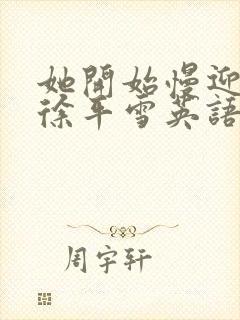 她開始慢迎
徐平雪英語
周宇軒